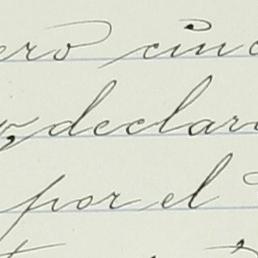 ero cinc
declara
por el